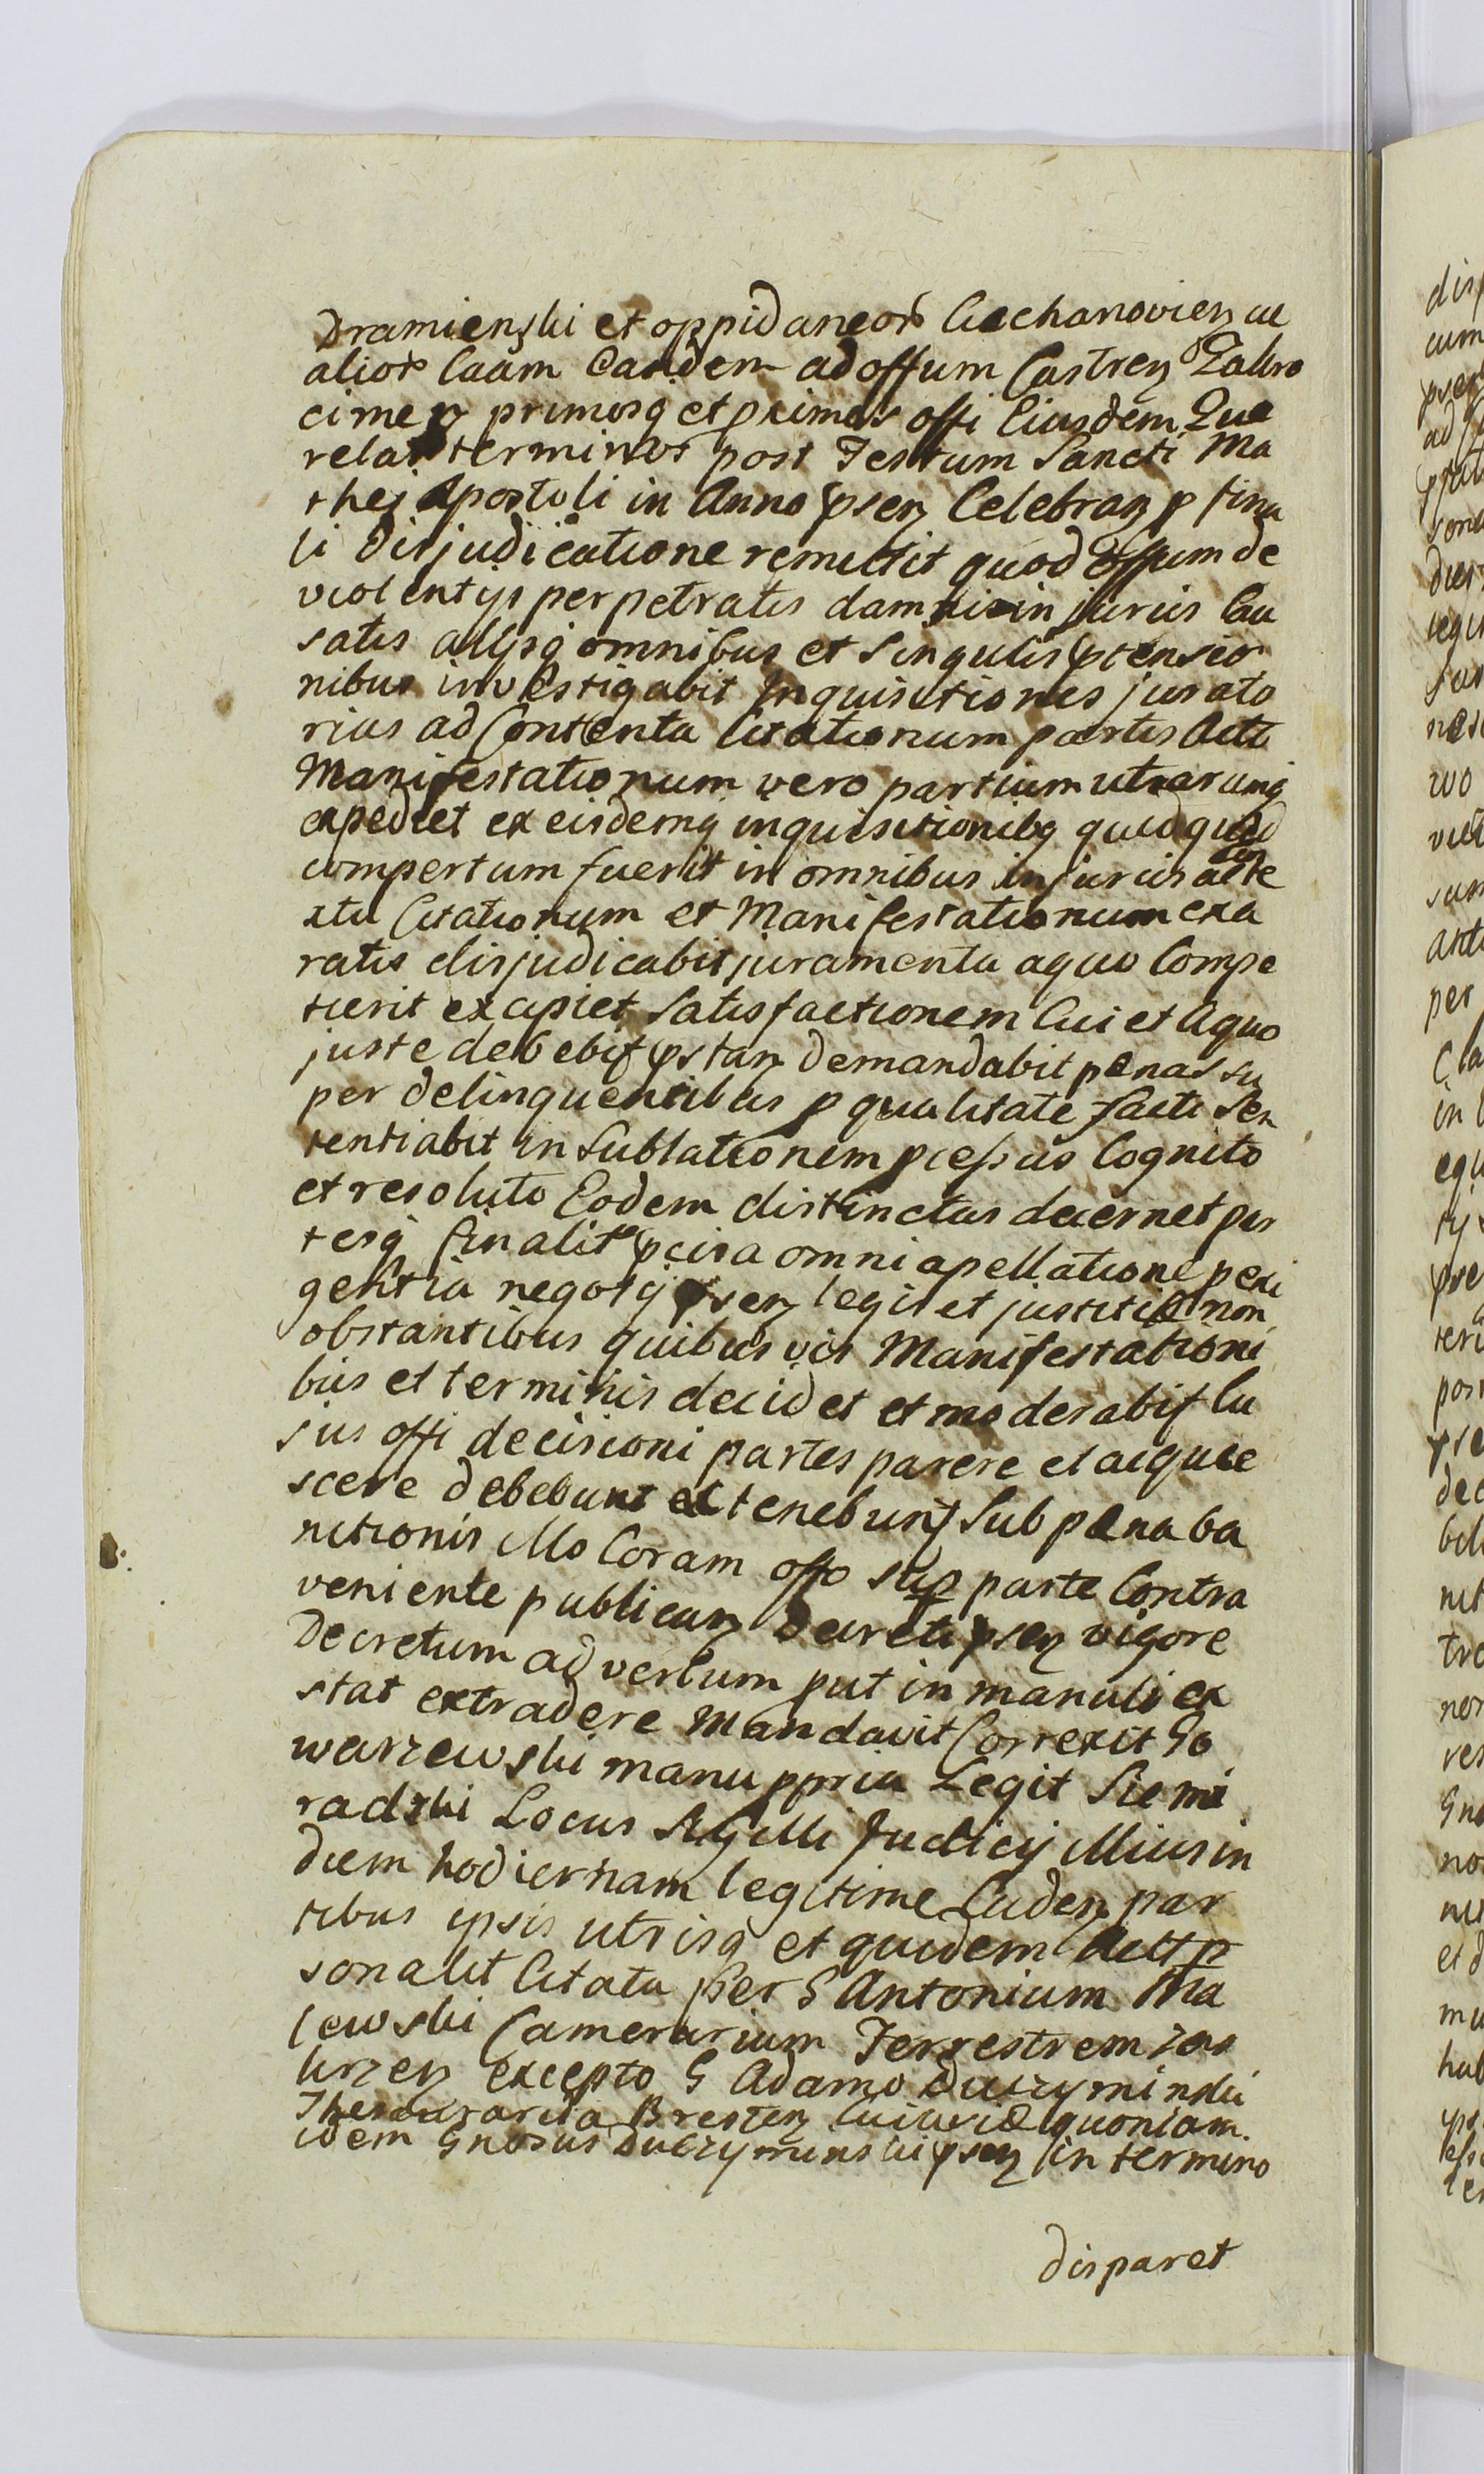 Dramienski et oppidaneor Ciechanovien ac
alior Caam Eandem ad offum Castren Zakro
cimen primosq et primos offi Eiusdem Que
relar terminos post Festum Sancti Ma
thei Apostoli in Anno psen Celebran p fina
li disjudicatione remittit quod offum de
violentijs perpetratis damnis injuriis Cau
satis alijsq omnibus et singulis ptensio
nibus investigabit Inquisitiones jurato
rias ad Contenta Citationum partis Acte
Manifestationum vero partium utrarumq
expediet ex eisdemq inquisitionibq quidquid
compertum fuerit in omnibus injuriis conte
xtu Citationum et Manifestationum exa
ratis disjudicabit juramenta a quo Compe
tierit excipiet Satisfactionem Cui et a quo
juste debebit pstan demandabit penas su
per delinquentibus p qualitate facti Sen
tentiabit in Sublationem pcessus Cognito
et resoluto Eodem distinctus decernet par
tesq finalit pcisa omni apellatione pexi
gentia negotij psen legis et justitie non
obstantibus quibusvis Manifestationi
bus et terminis decidet et moderabit Cu
jus offi decisioni partes parere et acquie
scere debebunt et tenebunt Sub pena ba
nitionis Illo Coram offo sup parte Contra
veniente publican Decreti psen vigore
Decretum ad verbum put in manuali ex
stat extradere Mandavit Correxit Go
warzewski manu ppria Legit Siemi
radzki Locus Sigilli Judicij Illius in
diem hodiernam legitime Caden par
tibus ipsis utrisq et quidem Act p
sonalit Citata per G Antonium Ma
lewski Camerarium Terrestrem zas
krzen excepto G Adamo Dobrzyminski
Thesaurario Bresten quoniam
idem Gnosus Dobrzyminski psen in termino
disparet